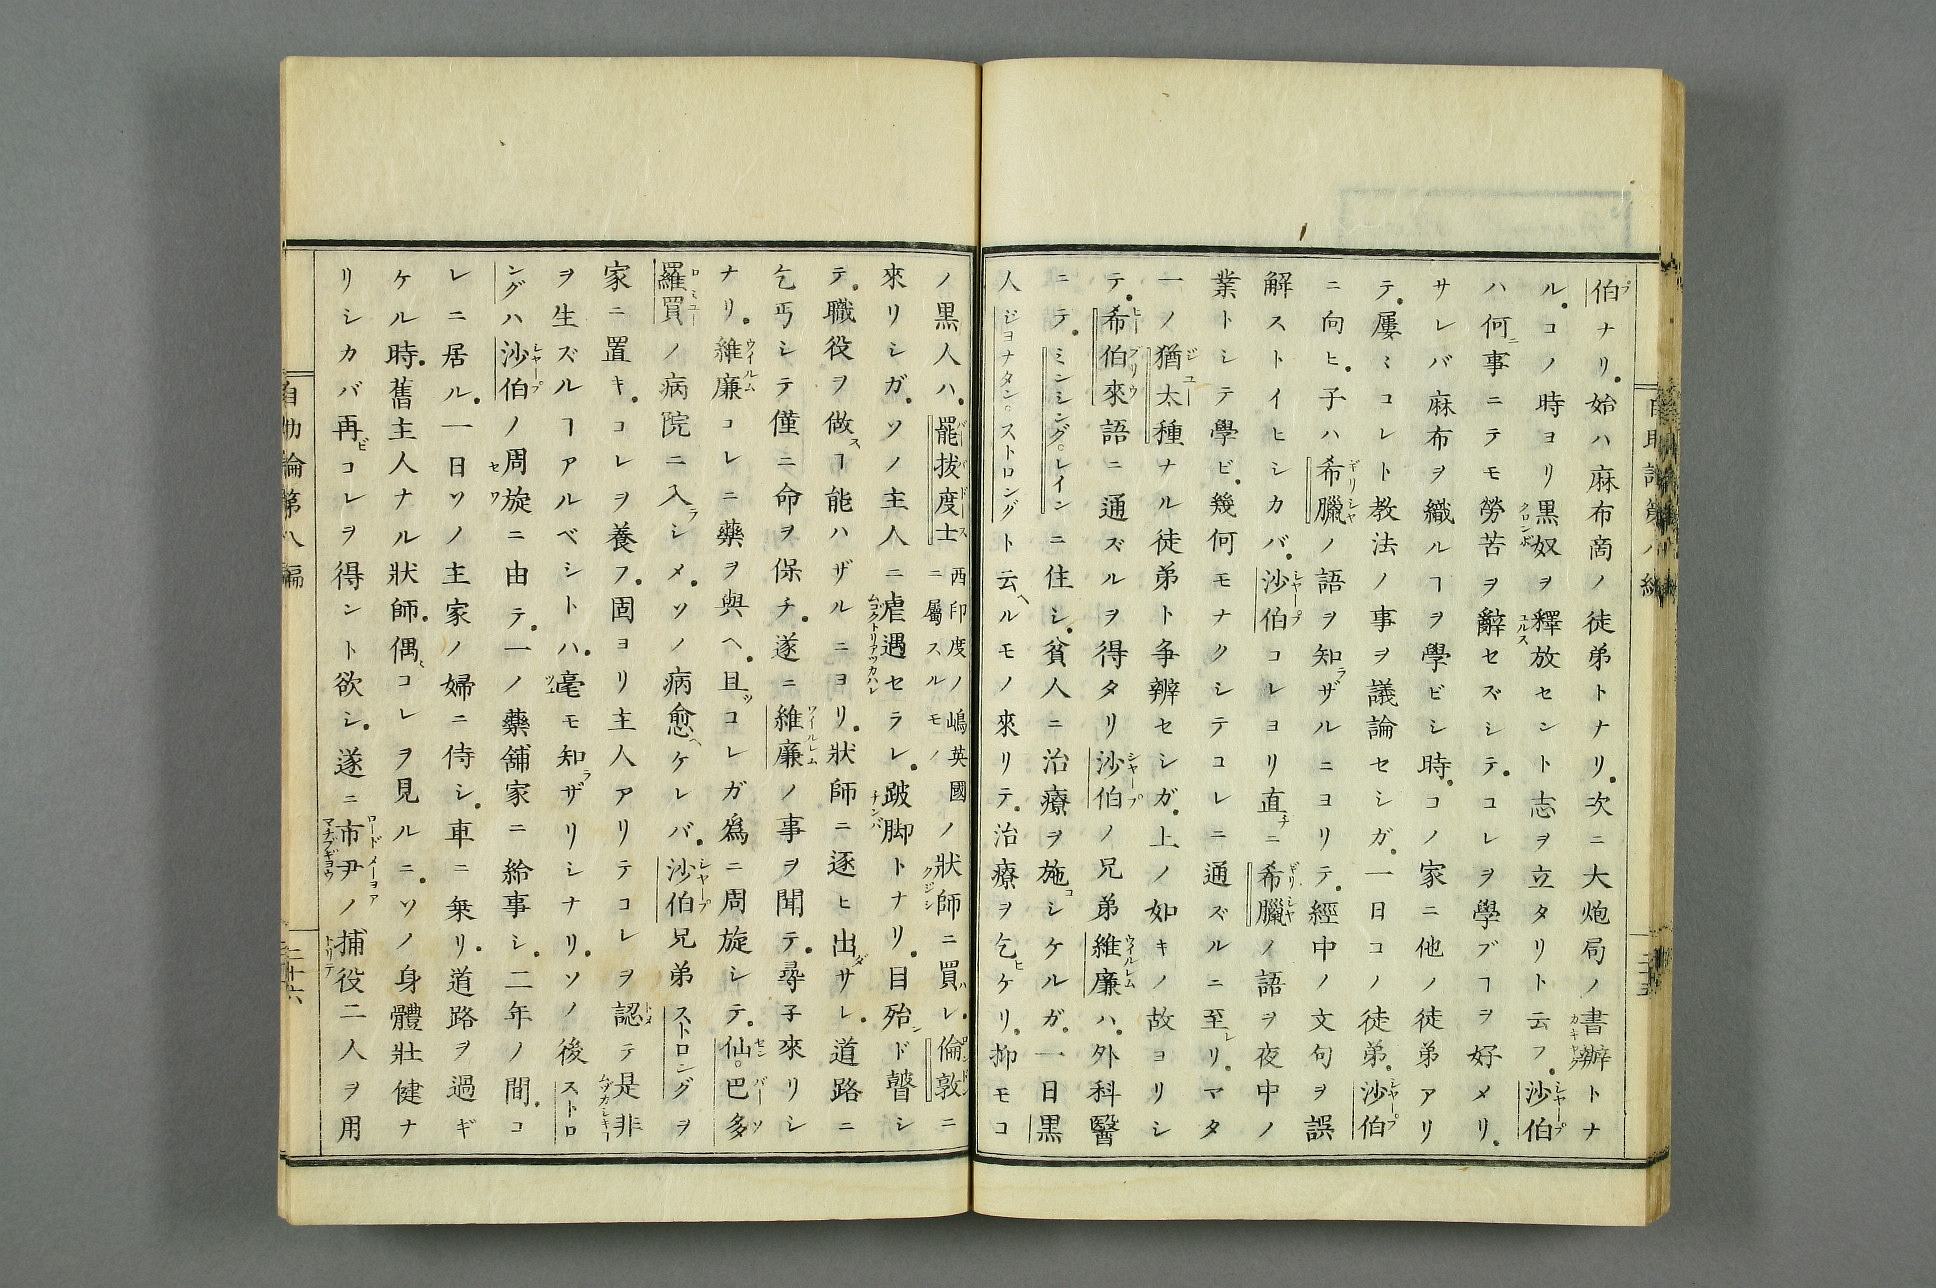 伯ナリ。始ハ麻布商ノ徒弟トナリ。次ニ大炮局ノ書辦トナ
ル。コノ時ヨリ黒奴ヲ釋放セント志ヲ立タリト云フ。沙伯
ハ何事ニテモ勞苦ヲ辭セズシテ。コレヲ學ブヿヲ好メリ。
サレバ麻布ヲ織ルヿヲ學ビシ時。コノ家ニ他ノ徒弟アリ
テ。屢〻コレト教法ノ事ヲ議論セシガ。一日コノ徒弟。沙伯
ニ向ヒ。子ハ希臘ノ語ヲ知ラザルニヨリテ。經中ノ文句ヲ誤
解ストイヒシカバ。沙伯コレヨリ直チニ希臘ノ語ヲ夜中ノ
業トシテ學ビ。幾何モナクシテコレニ通ズルニ至レリ。マタ
一ノ猶太種ナル徒弟ト争辨セシガ。上ノ如キノ故ヨリシ
テ。希伯來語ニ通ズルヲ得タリ沙伯ノ兄弟維廉ハ。外科醫
ニテ。ミンシング。レインニ住シ。貧人ニ治療ヲ施コシケルガ。一日黒
人ジヨナタン。ストロングト云ヘルモノ來リテ。治療ヲ乞ヒケリ。抑モコ
ノ黒人ハ。罷拔度士西印度ノ嶋英國ニ屬スルモノノ狀師ニ買ハレ。倫敦ニ
來リシガ。ソノ主人ニ虐遇セラレ。跛脚トナリ。目殆ンド瞽シ
テ。職役ヲ做スヿ能ハザルニヨリ。狀師ニ逐ヒ出ダサレ。道路ニ
乞丐シテ僅ニ命ヲ保チ。遂ニ維廉ノ事ヲ聞テ。尋子來リシ
ナリ。維廉コレニ藥ヲ與ヘ。且ツコレガ爲ニ周旋シテ。仙。巴多
羅買ノ病院ニ入ラシメ。ソノ病愈ヘケレバ。沙伯兄弟ストロングヲ
家ニ置キ。コレヲ養フ。固ヨリ主人アリテコレヲ認テ是非
ヲ生ズルヿアルベシトハ。毫モ知ラザリシナリ。ソノ後ストロ
ングハ沙伯ノ周旋ニ由テ。一ノ藥舗家ニ給事シ。二年ノ間。コ
レニ居ル。一日ソノ主家ノ婦ニ侍シ。車ニ乗リ。道路ヲ過ギ
ケル時。舊主人ナル狀師。偶〻コレヲ見ルニ。ソノ身體壯健ナ
リシカバ再ビコレヲ得ント欲シ。遂ニ市尹ノ捕役二人ヲ用
自助論第八編
二十六